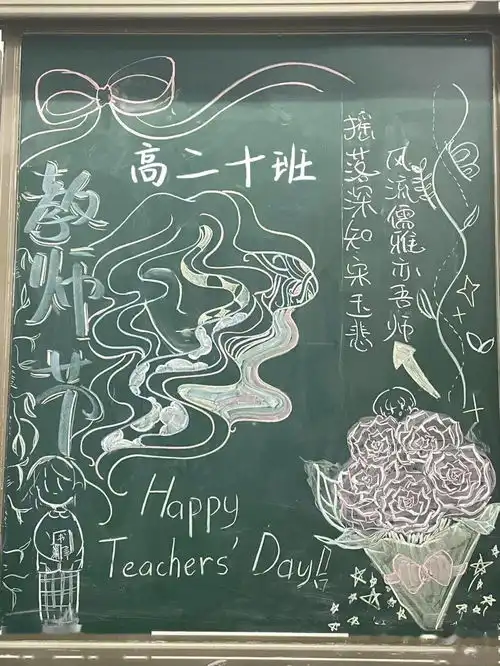 高二十班
教师节
摇落深知宋玉悲
风流儒雅亦吾师
Happy
Teachers' Day!!